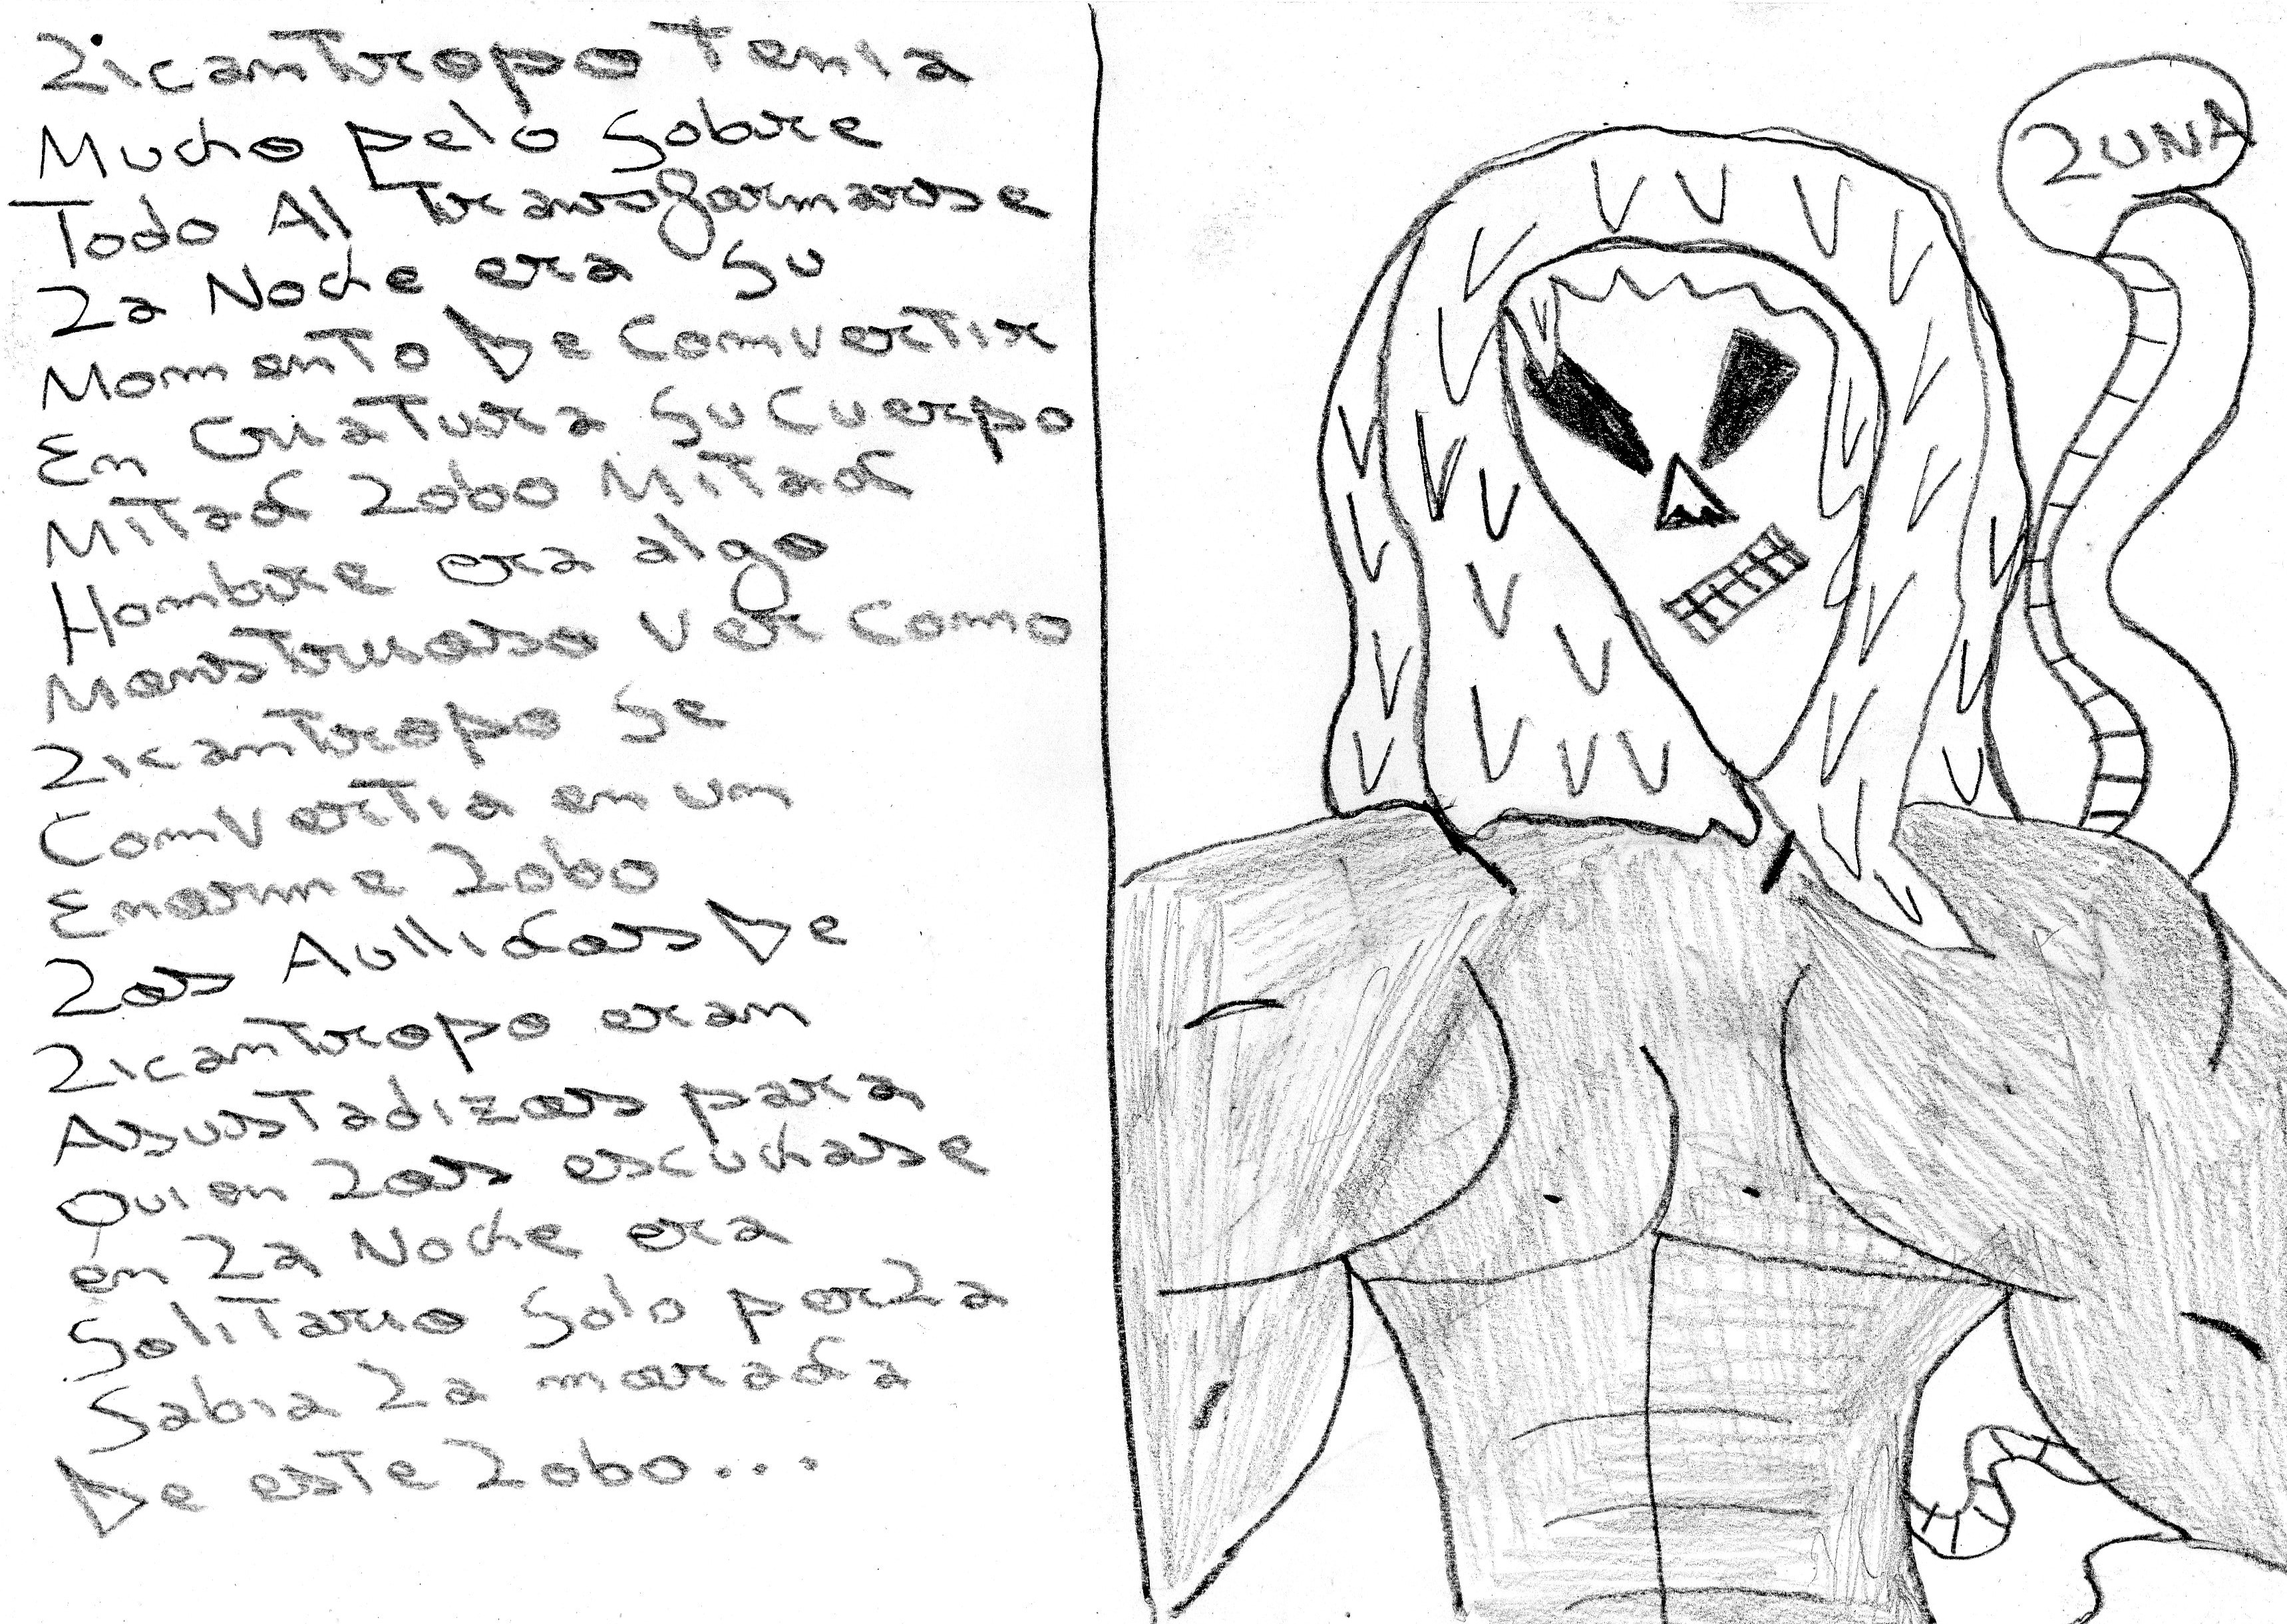 Licantropo Tenia
Mucho pelo Sobre
Todo Al transformarse
La Noche era Su
Momento De Comvertir
En Criatura Su Cuerpo
Mitad Lobo Mitad
Hombre era algo
Monstruoso Ver Como
Licantropo Se
Comvertia en un
Enorme Lobo
Los Aullidos De
Licantropo eran
Asustadizos para
Quien Los escuchase
en La Noche era
Solitario Solo porLa
Sabia La morada
De este Lobo...
LUNA